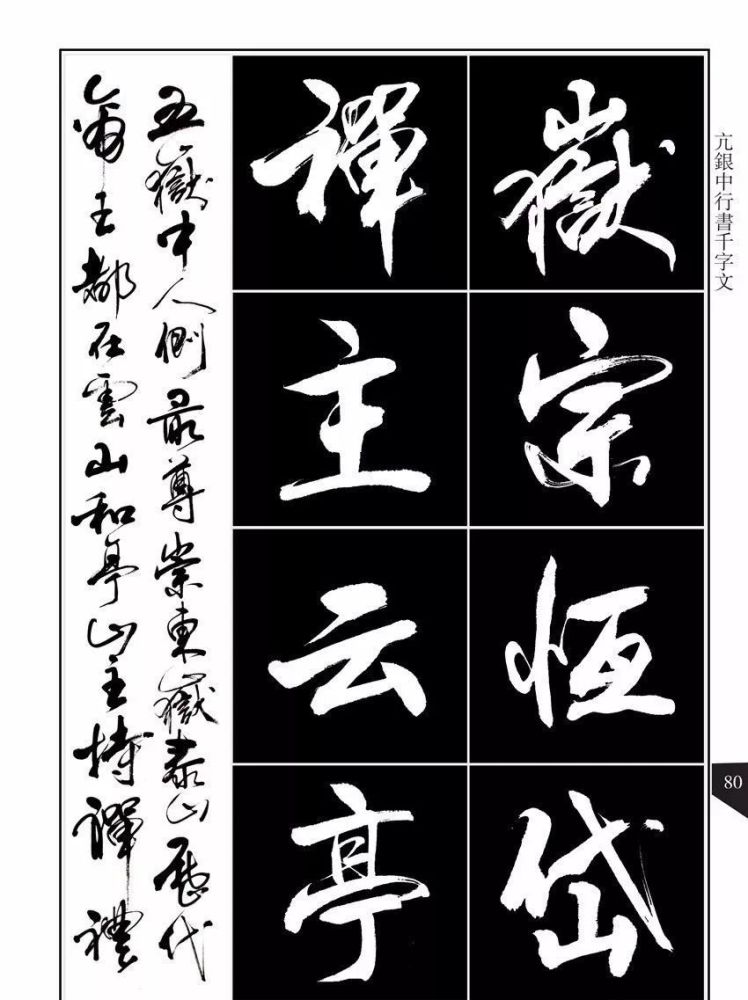 亢銀中行書千字文
80
嶽宗恒岱
禪主云亭
五嶽中人們最尊崇東嶽泰山歷代
帝王都在雲山和亭山主持禪禮